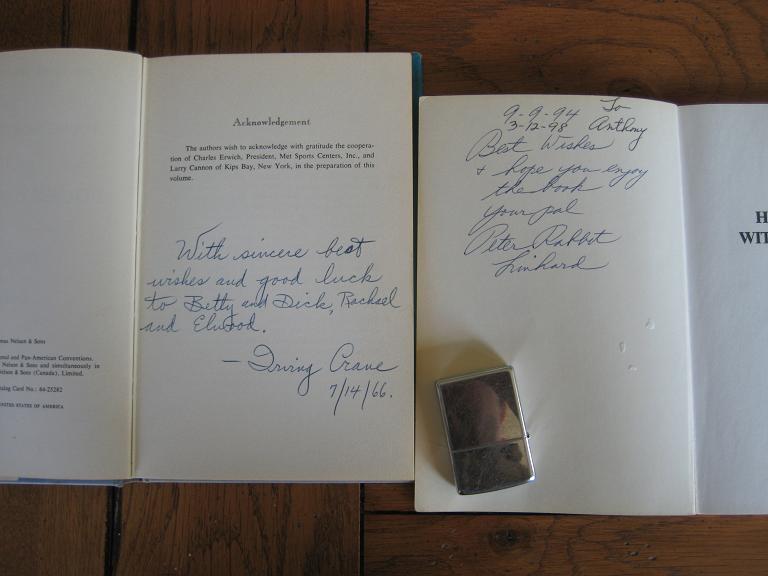 Acknowledgement
The authors wish to acknowledge with gratitude the coopera-
tion of Charles Erwich, President, Met Sports Centers, Inc., and
Larry Cannon of Kips Bay, New York, in the preparation of this
volume.
With sincere best
wishes and good luck
to Betty and Dick, Rachael
and Elwood.
— Irving Crane
7/14/66.
Nelson & Sons
and Pan-American Conventions.
Nelson & Sons and simultaneously in
& Sons (Canada), Limited.
Card No.: 64-25282
UNITED STATES OF AMERICA
9-9-94 To
3-12-98 Anthony
Best Wishes
+ hope you enjoy
the book
your pal
Peter Rabbit
Linhard
H
WIT